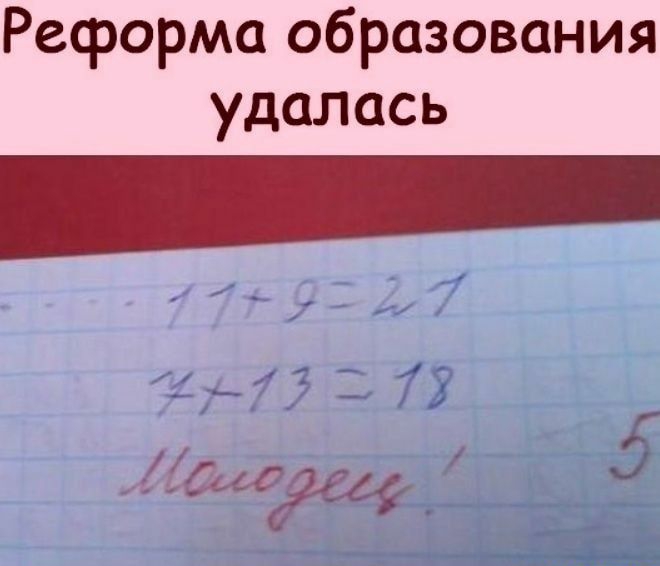 Реформа образования
удалась
11+9=21
7+13=18
Молодец! 5